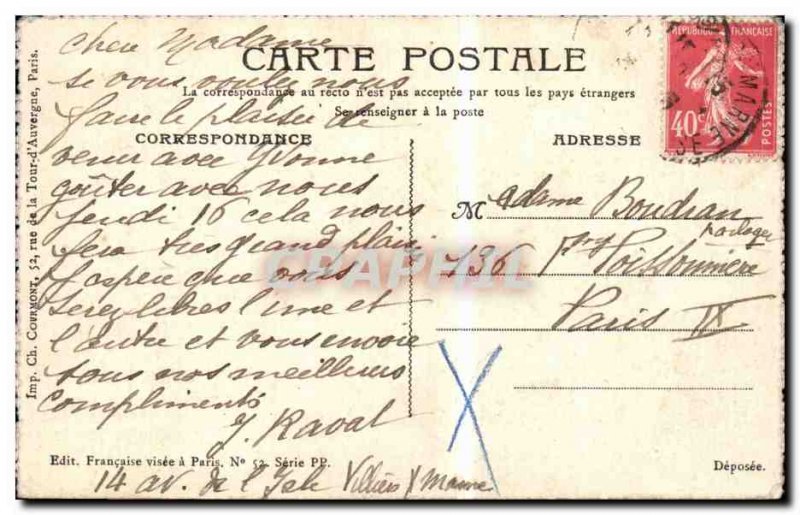 CARTE POSTALE
La correspondance au recto n'est pas acceptée par tous les pays étrangers
Se renseigner à la poste
CORRESPONDANCE
ADRESSE
RÉPUBLIQUE FRANÇAISE
40c
POSTES
MARNE
Imp. Ch. COURMONT, 52, rue de la Tour-d'Auvergne, Paris.
Chere Madame
si vous voulez nous
faire le plaisir de
venir avec Yvonne
goûter avec nous
Jeudi 16 cela nous
fera tres grand plaisir
J'espere que vous
serez libres l'une et
l'autre et vous envoie
tous nos meilleurs
compliments
J. Raval
Madame Boudran
136 Fg Poissonniere
Paris IX
CPAPHIL
Edit. Française visée à Paris, No 52. Série PP.
Déposée.
14 av. de l'Isle Villiers s/ Marne